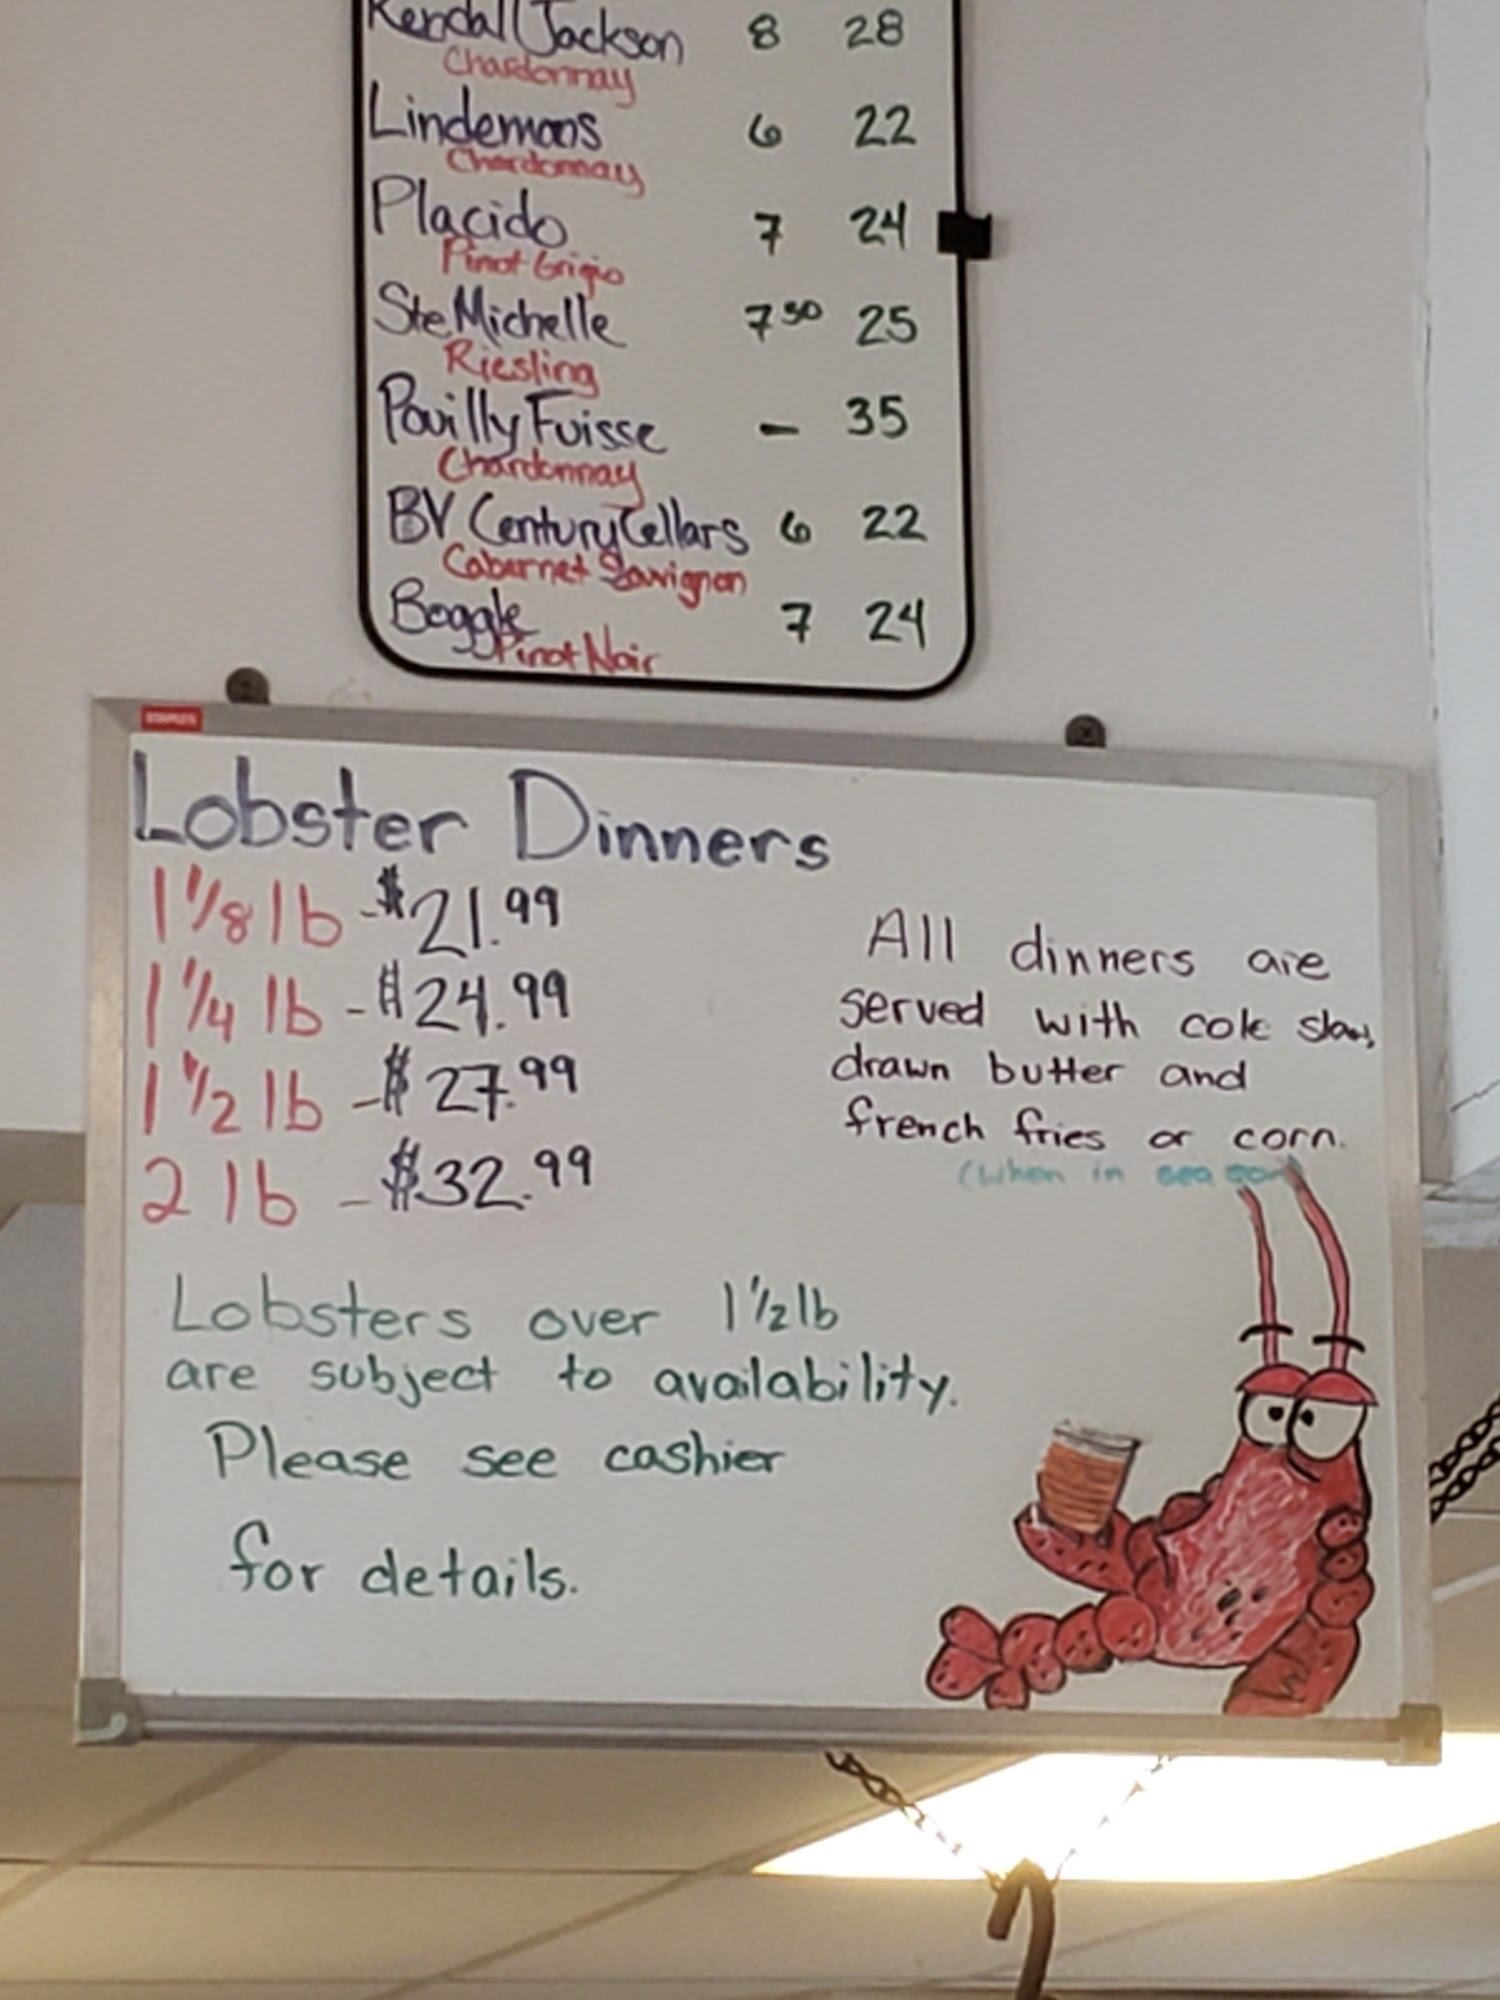 Kendall Jackson 8 28
Chardonnay
Lindemans 6 22
Chardonnay
Placido 7 24
Pinot Grigio
Ste Michelle 7 50 25
Riesling
Pouilly Fuisse - 35
Chardonnay
BV Century Cellars 6 22
Cabernet Sauvignon
Boggle 7 24
Pinot Noir
STAPLES
Lobster Dinners
1 1/8 lb - $21.99
1 1/4 lb - $24.99
1 1/2 lb - $27.99
2 lb - $32.99
All dinners are
served with cole slaw,
drawn butter and
french fries or corn.
(when in season)
Lobsters over 1 1/2 lb
are subject to availability.
Please see cashier
for details.